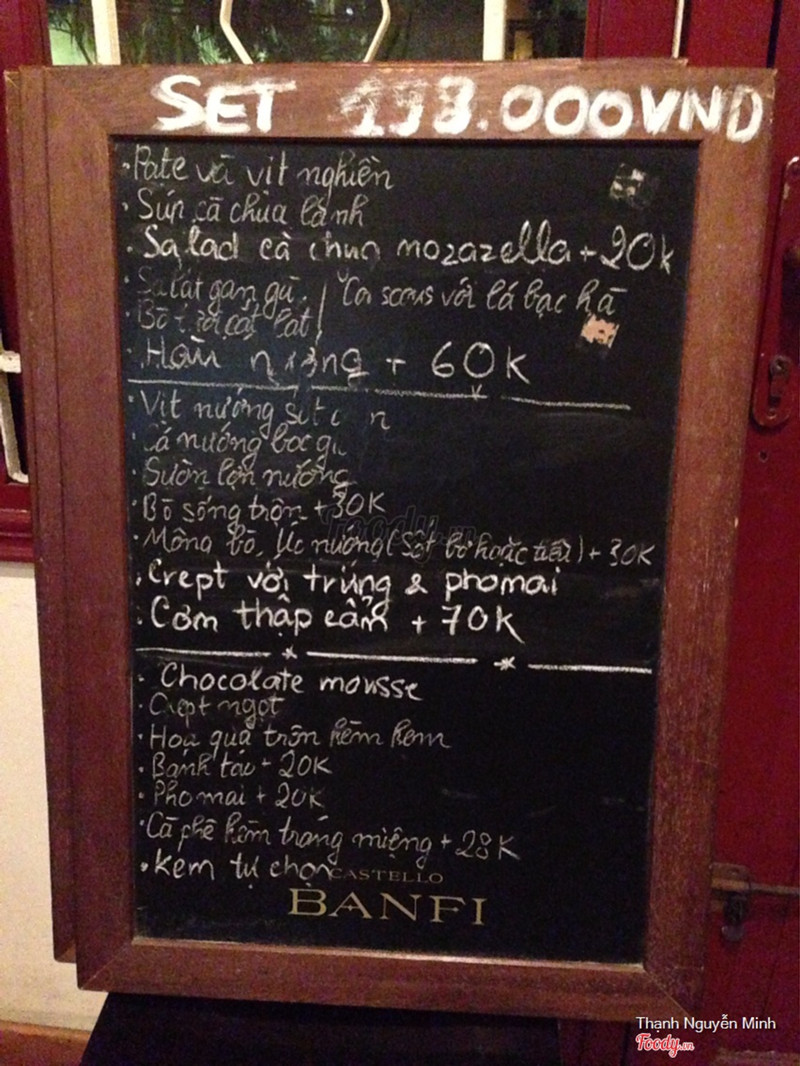 SET 198.000VND
• Pate và vịt nghiền
• Súp cà chua lạnh
• Salad cà chua mozazella + 20k
• Salát gan gà.
• Bò tươi cắt lát
Cơi scous với lá bạc hà
• Hàu nướng + 60K
• Vịt nướng sốt
• Cá nướng bọc
• Sườn lợn nướng
• Bò sống trộn + 30K
• Mông bò, Úc nướng (Sốt bơ hoặc tiêu) + 30K
• Crept với trứng & phomai
• Cơm thập cẩm + 70K
• Chocolate mousse
• Crept ngọt
• Hoa quả trộn kèm kem
• Bánh táo + 20K
• Phomai + 20K
• Cà phê kèm tráng miệng + 28K
• Kem tự chọn
CASTELLO
BANFI
Foody.vn
Thạnh Nguyễn Minh
Foody.vn